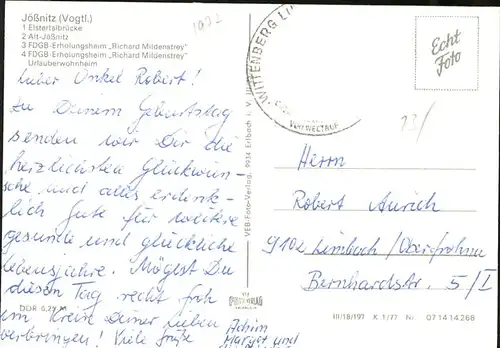 Jößnitz (Vogtl.)
1 Elstertalbrücke
2 Alt-Jößnitz
3 FDGB-Erholungsheim „Richard Mildenstrey“
4 FDGB-Erholungsheim „Richard Mildenstrey“
Urlauberwohnheim
Lieber Onkel Robert!
Zu Deinem Geburtstag
senden wir Dir die
herzlichsten Glückwün-
sche und alles erdenk-
lich Gute für weitere
gesunde und glückliche
Lebensjahre. Mögest Du
diesen Tag recht froh
im Kreise Deiner Lieben
verbringen! Viele Grüße
Achim
Margot und
DDR 0,25 M
VEB-Foto-Verlag, 9934 Erlbach i. V.
WITTENBERG LU
WELTRUF
Echt
Foto
23/
Herrn
Robert Aurich
9102 Limbach/Oberfrohna
Bernhardstr. 5/I
III/18/197 K 1/77 Nr. 07 14 14 268